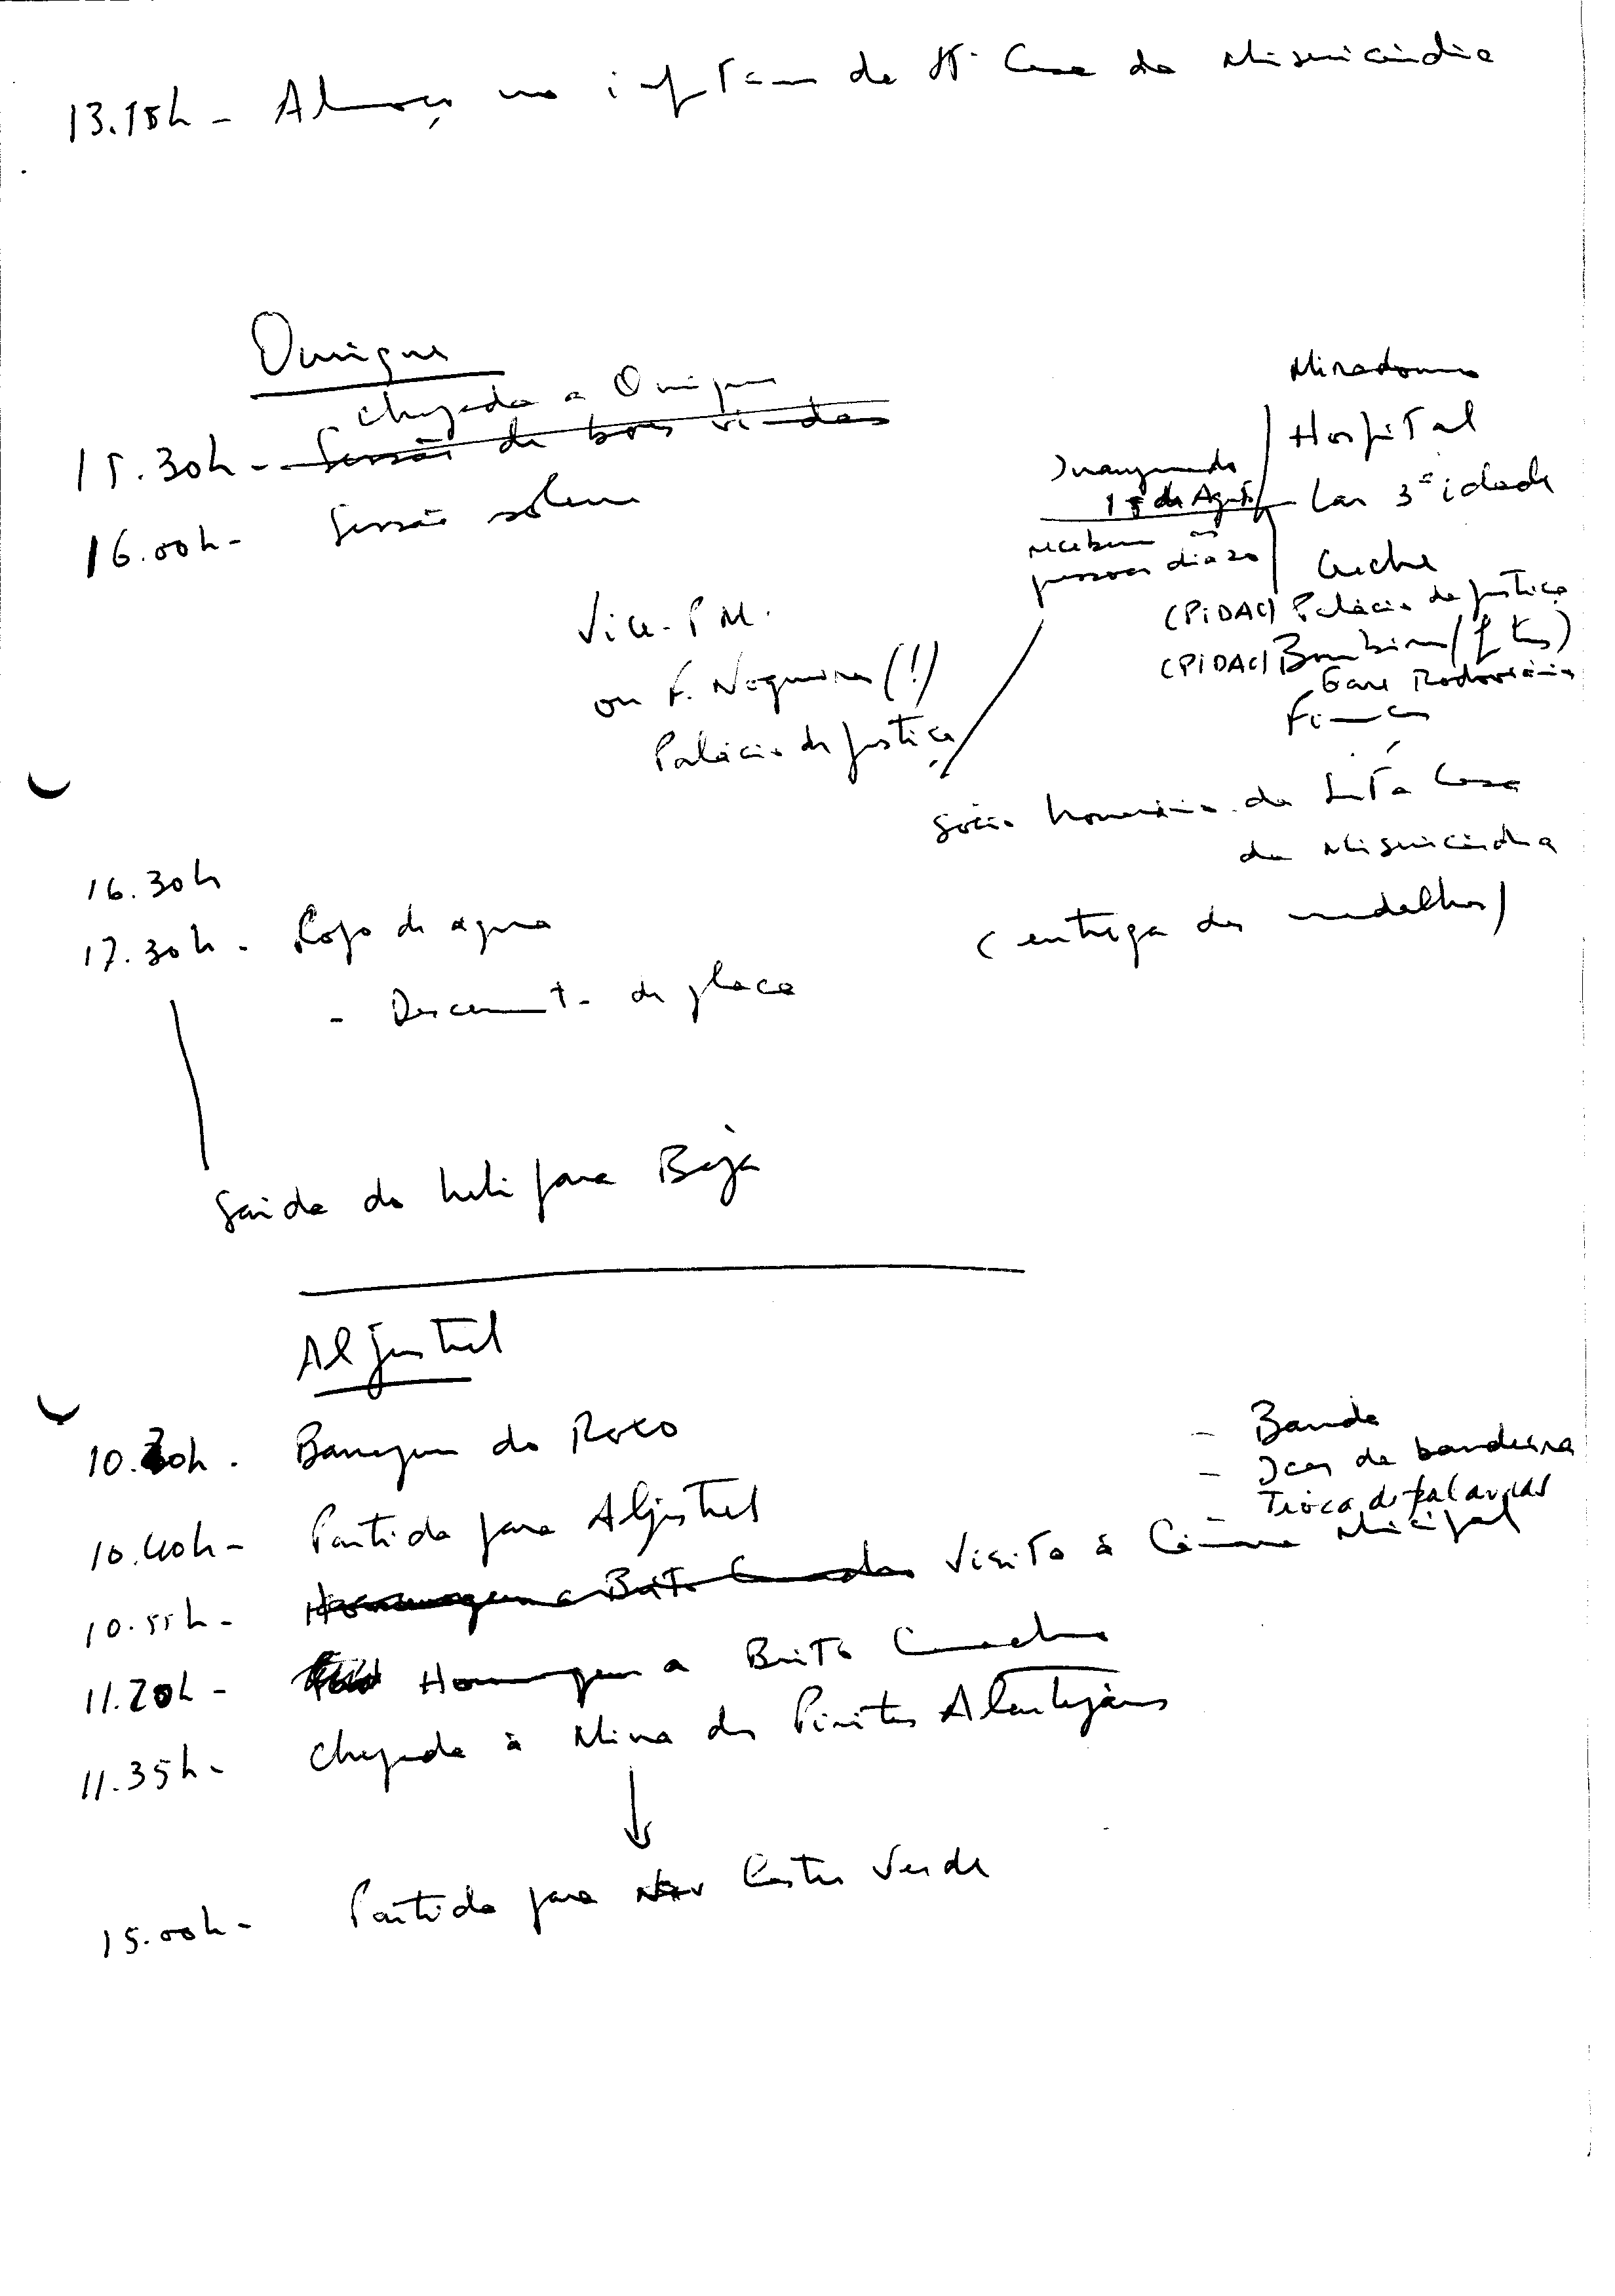 13.15h - Almoço no infantário da Stª Casa da Misericórdia
Ourique
Chegada a Ourique
15.30h - Sessão de boas vindas
16.00h - Sessão solene
Miradouro
Hospital
Inaugurado
15 de Agosto
Lar 3ª idade
recebem
pessoas dia 20
Creche
(PIDAC) Palácio da Justiça
(PIDAC) Bombeiros
Gare Rodoviária
Finanças
Vice-P.M.
ou F. Nogueira (!)
Palácio da Justiça
Sócio honorário da Santa Casa
da Misericórdia
(entrega das medalhas)
16.30h
17.30h - Copo de água
- Descerramento de placa
Saída do heli para Beja
Aljustrel
10.30h - Barragem do Roxo
10.40h - Partida para Aljustrel
- Banda
- Içar da bandeira
Troca de palavras
10.55h - Homenagem a Brito Camacho Visita à Câmara Municipal
11.20h - Homenagem a Brito Camacho
11.35h - Chegada à Mina das Pirites Alentejanas
15.00h - Partida para Castro Verde